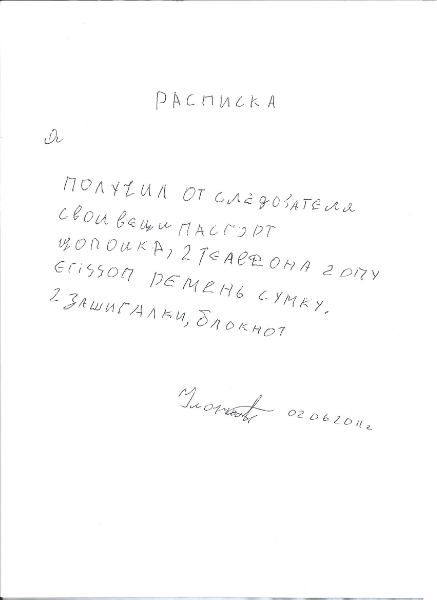 РАСПИСКА
ПОЛУЧИЛ ОТ СЛЕДОВАТЕЛЯ
СВОИ ВЕЩИ ПАСПОРТ
2 ТЕЛЕФОНА
РЕМЕНЬ СУМКУ.
2 ЗАЖИГАЛКИ, БЛОКНОТ
02 06 2011г